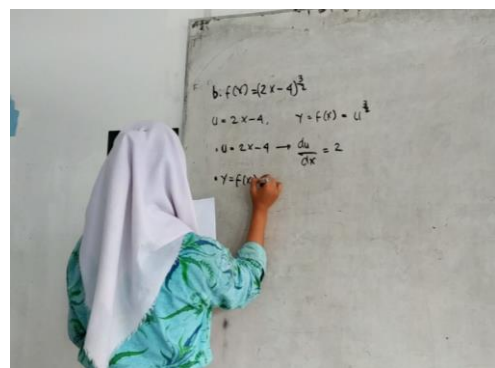 b. f(x) = (2x-4)^3/2
u = 2x-4, y = f(x) = u^3/2
• u = 2x-4 → du/dx = 2
• y = f(x)